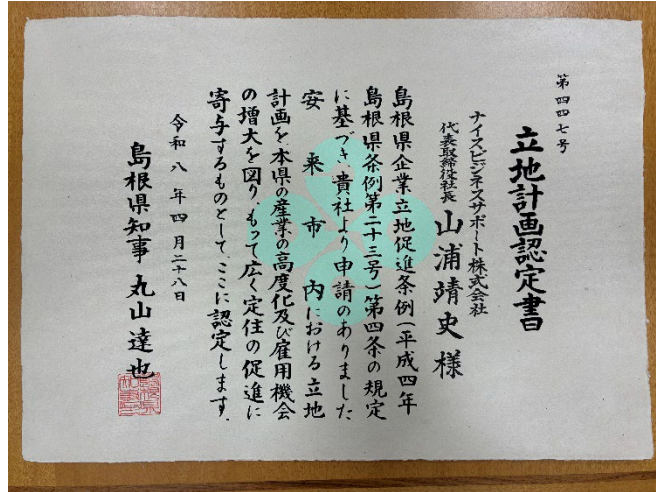 第四四七号
立地計画認定書
ナイスビジネスサポート株式会社
代表取締役社長 山浦靖史 様
島根県企業立地促進条例(平成四年
島根県条例第二十三号)第四条の規定
に基づき、貴社より申請のありました
安来市内における立地
計画を、本県の産業の高度化及び雇用機会
の増大を図り、もって広く定住の促進に
寄与するものとして、ここに認定します。
令和八年四月二十八日
島根県知事 丸山達也